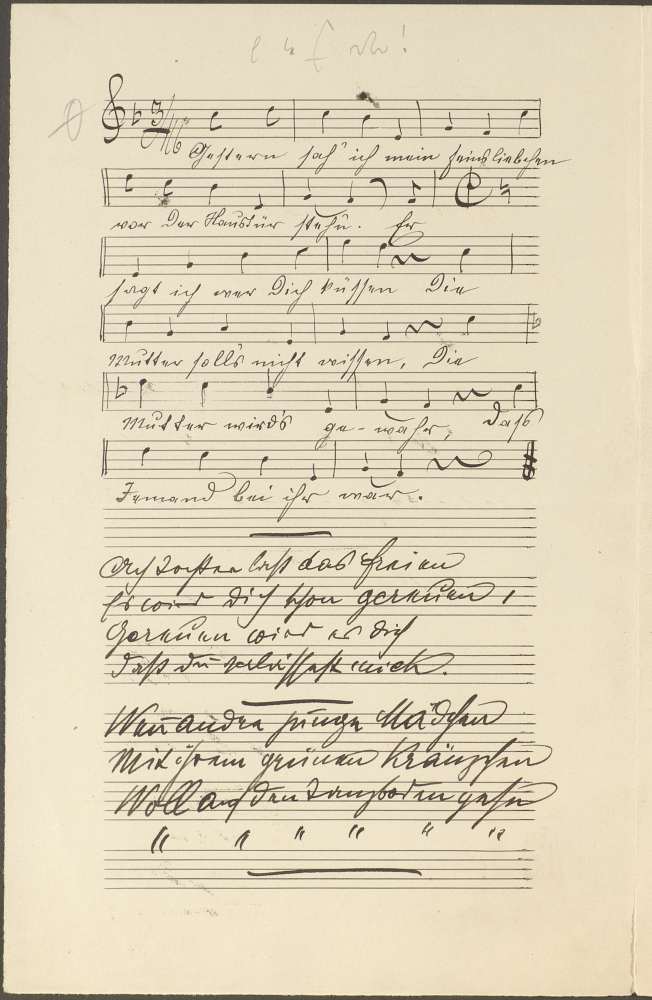 Gestern sah' ich mein feinsliebchen
vor der Haustür stehn. Er
sagt ich wer Dich küssen Die
Mutter solls nicht wissen, Die
Mutter wird's ge-wahr, dass
Jemand bei ihr war.
Ach Tochter laß das freien
Es wird Dich schon gereuen,
Gereuen wird es dich
Daß du verlässest mich.
Wen̄ andre junge Mädchen
Mit ihrem grünen Kränzchen
Woll auf den Tanzboden gehn
" " " " " "